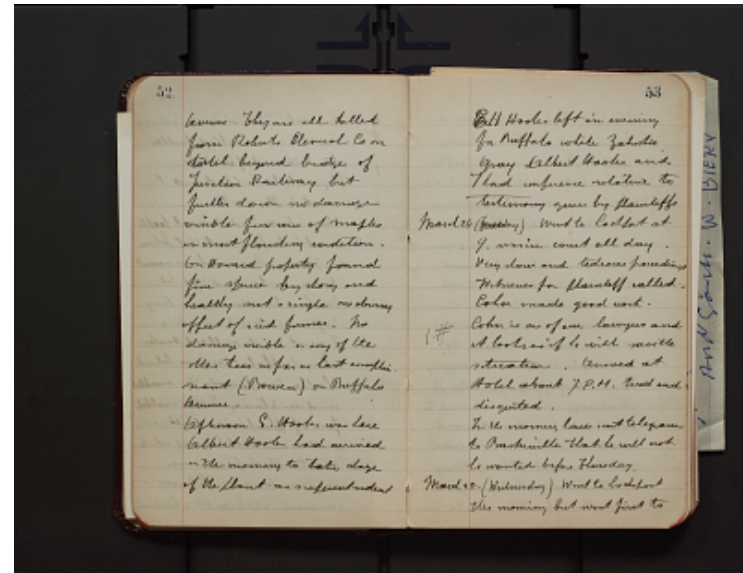 52
Avenue. They are all killed
from Roberts Chemical Co on
hotel beyond bridge of
Junction Railway but
further down no damage
visible fine row of maples
in most flourishing condition.
On Howard property found
fine spruce hey doing and
healthy not a single
effect of acid fumes. No
damage visible in any of the
other trees as far as last complai-
nant (Bowen) on Buffalo
Avenue
Afternoon E. Hooker was here
Albert Hooker had arrived
in the morning to take charge
of the plant as superintendent
53
Hooker left in evening
for Buffalo while
Gray Albert Hooker and
I had conference relative to
testimony given by plaintiffs
March (Tuesday) Went to Lockport at
9. was in court all day.
Very slow and tedious proceedings
Witnesses for plaintiff called.
Cohn made good work.
Cohn is one of our lawyers and
it looks as if he will
situation. Arrived at
Hotel about 7 P.M. tired and
disgusted.
In the morning have sent telegram
to Baskerville that he will not
be wanted before Thursday.
March (Wednesday) Went to Lockport
this morning but went first to
W. BIERY